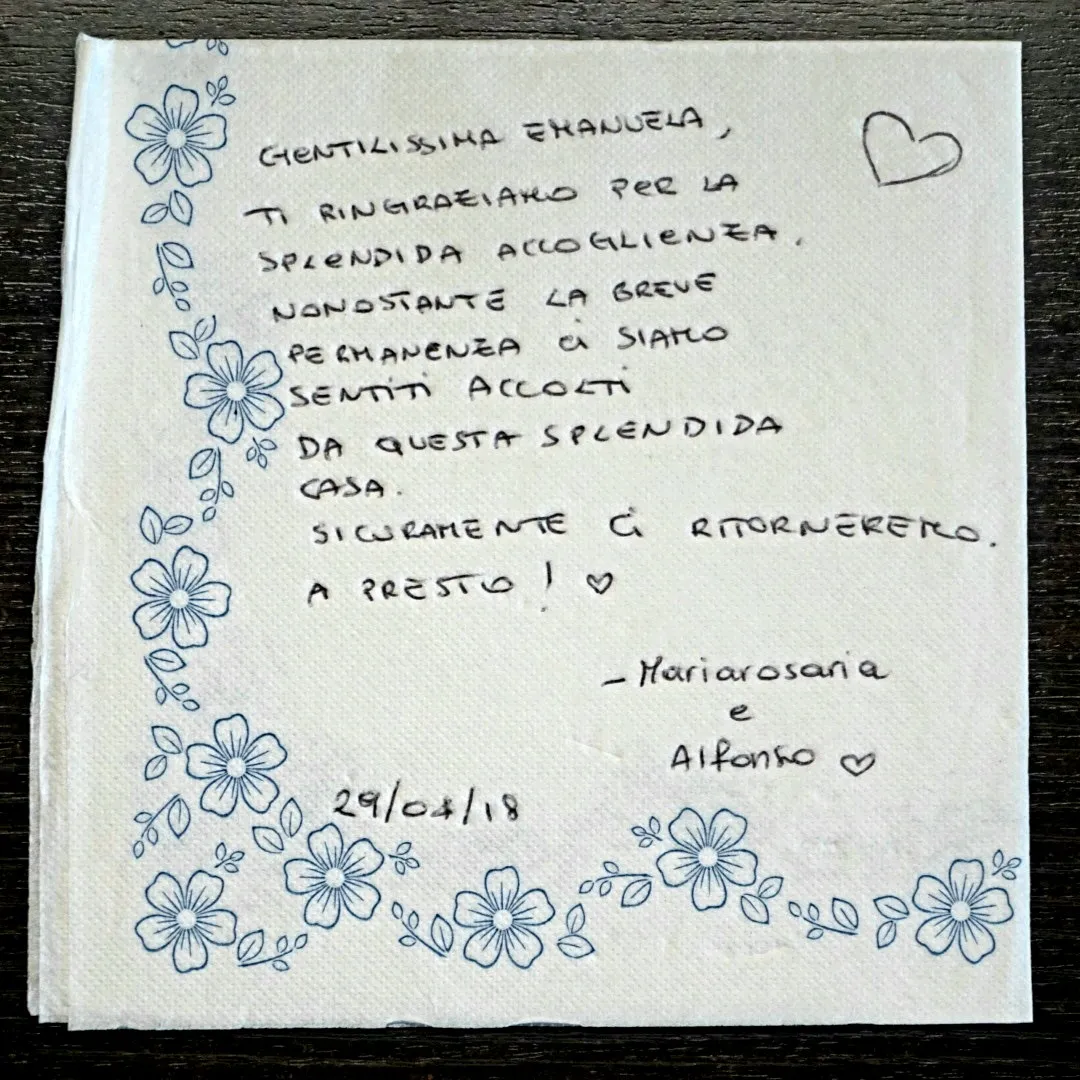 GENTILISSIMA EMANUELA,
TI RINGRAZIAMO PER LA
SPLENDIDA ACCOGLIENZA.
NONOSTANTE LA BREVE
PERMANENZA CI SIAMO
SENTITI ACCOLTI
DA QUESTA SPLENDIDA
CASA.
SICURAMENTE CI RITORNEREMO.
A PRESTO! ♡
– Mariarosaria
e
Alfonso ♡
29/04/18